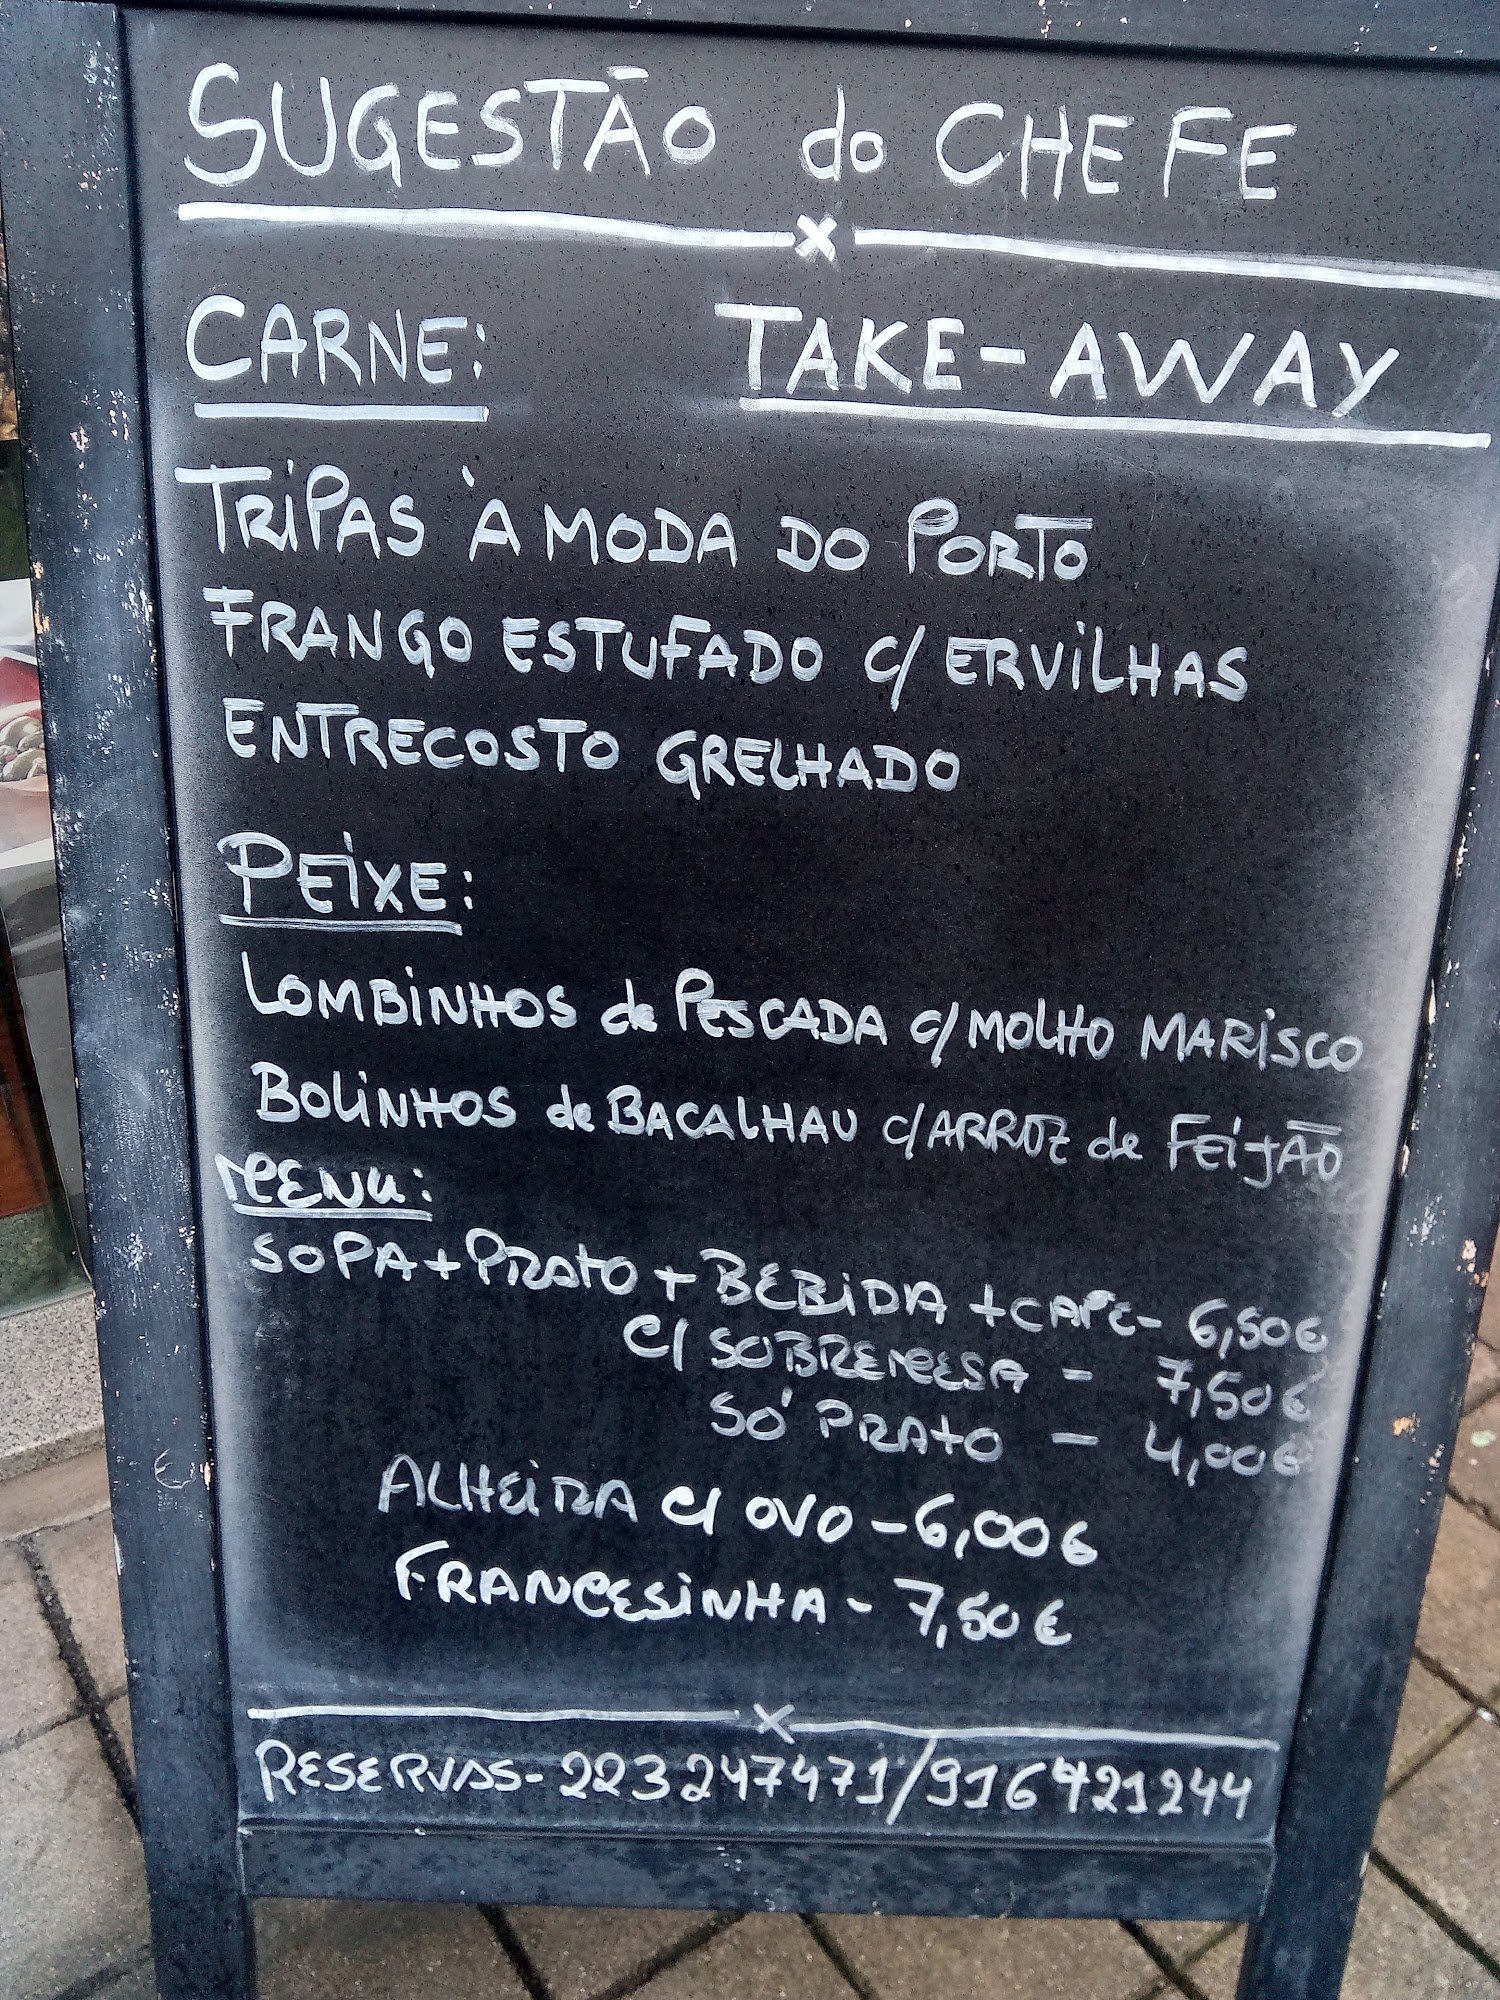 SUGESTÃO do CHEFE
CARNE: TAKE-AWAY
TRIPAS À MODA DO PORTO
FRANGO ESTUFADO C/ ERVILHAS
ENTRECOSTO GRELHADO
PEIXE:
LOMBINHOS de PESCADA C/ MOLHO MARISCO
BOLINHOS de BACALHAU C/ ARROZ de FEIJÃO
MENU:
SOPA + PRATO + BEBIDA + CAFÉ - 6,50€
C/ SOBREMESA - 7,50€
SÓ PRATO - 4,00€
ALHEIRA C/ OVO - 6,00€
FRANCESINHA - 7,50€
RESERVAS - 223247471/916421244